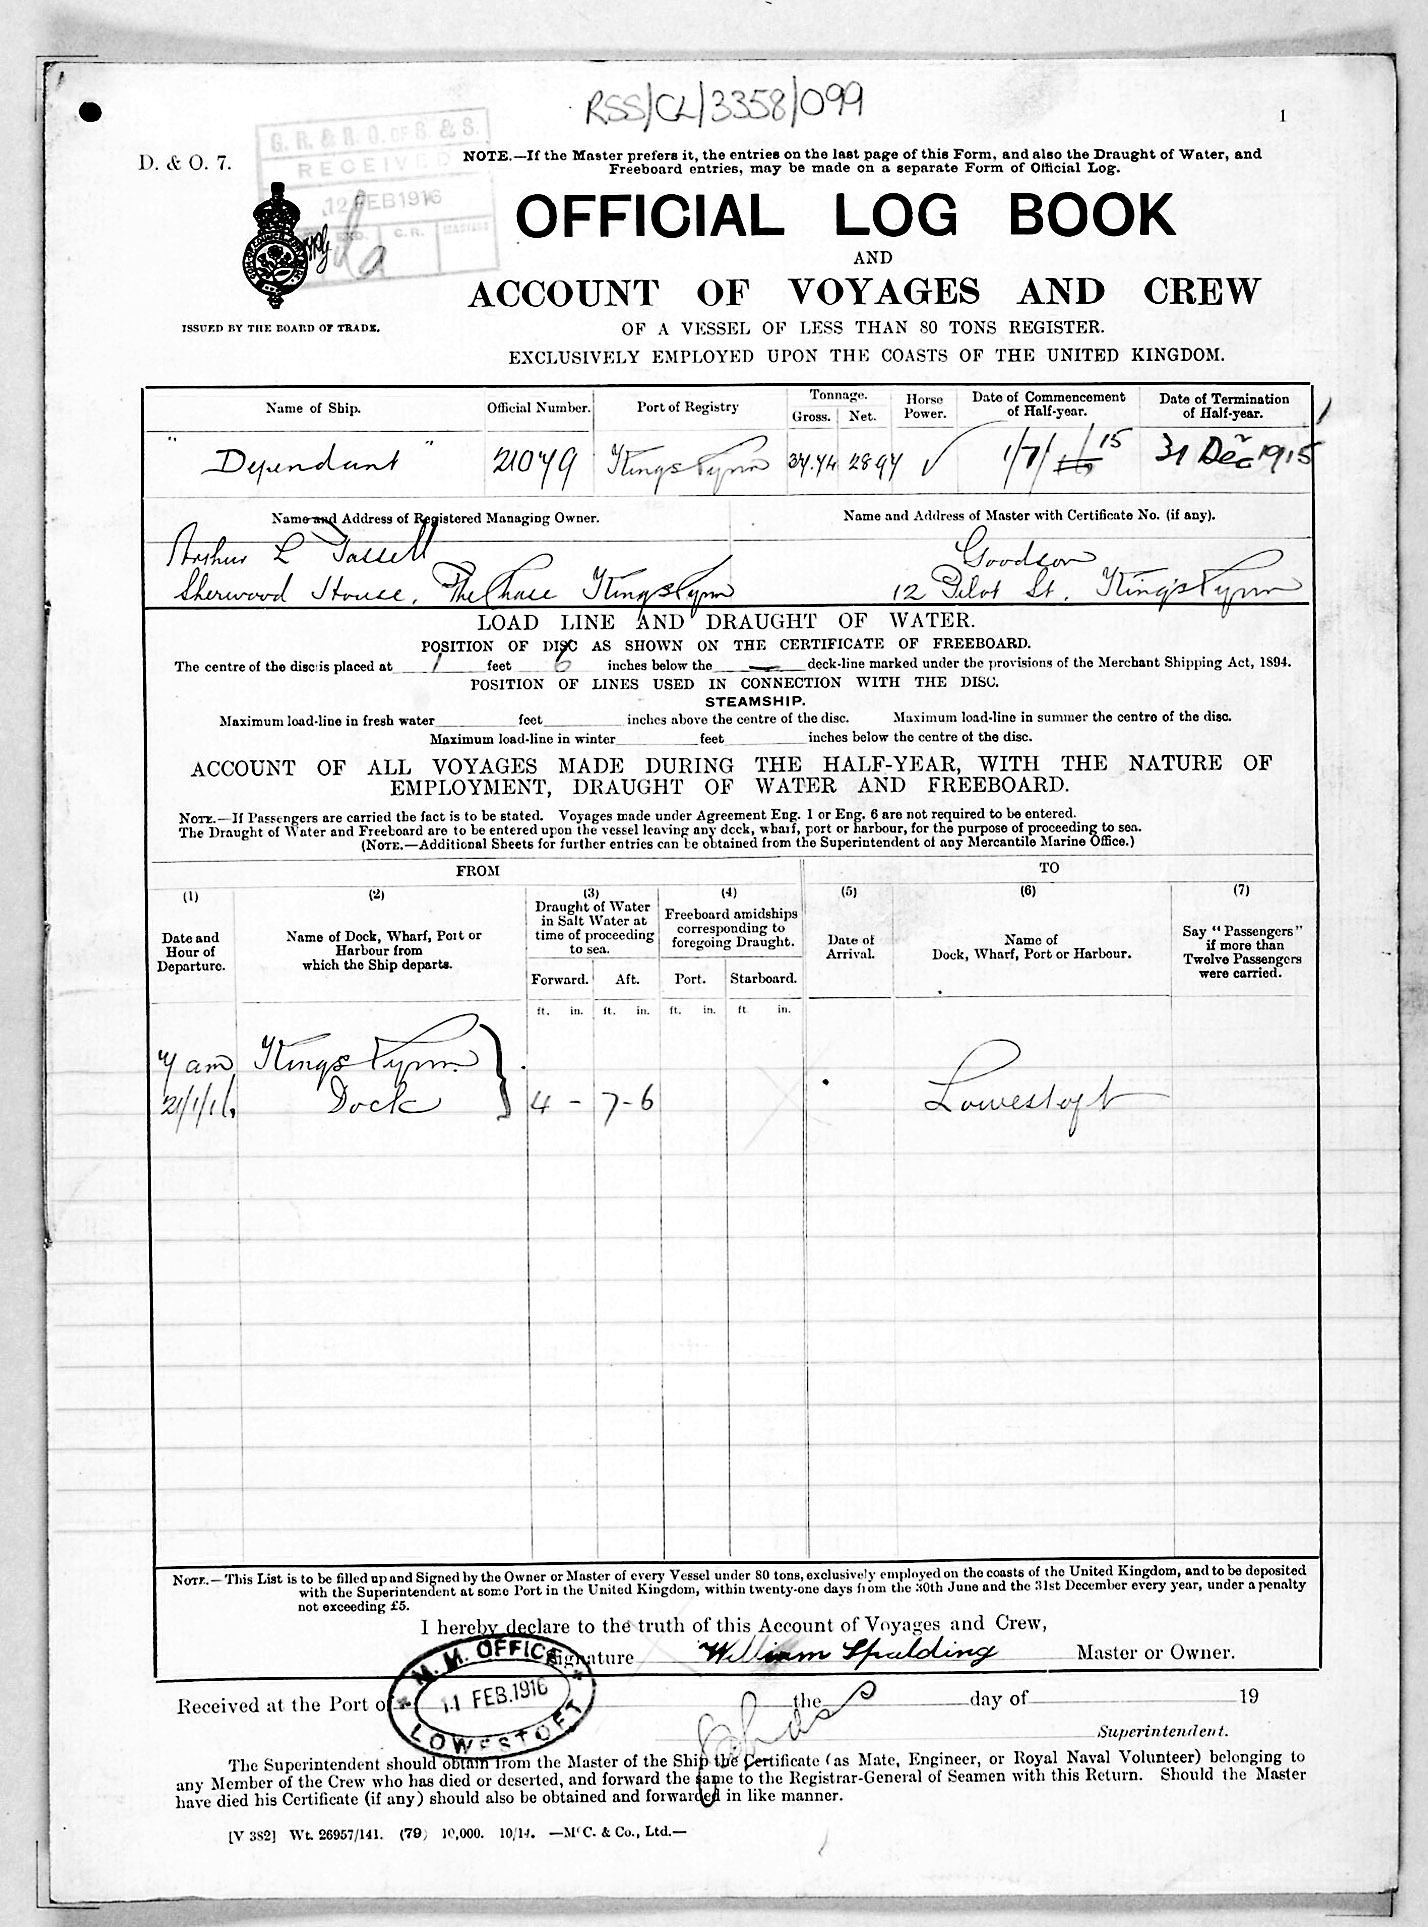 RSS/CL/3358/099
1
D. & O. 7.
G. R. & R. O. OF S. & S.
RECEIVED
12 FEB 1916
C. R.
NOTE.—If the Master prefers it, the entries on the last page of this Form, and also the Draught of Water, and
Freeboard entries, may be made on a separate Form of Official Log.
OFFICIAL LOG BOOK
AND
ACCOUNT OF VOYAGES AND CREW
ISSUED BY THE BOARD OF TRADE.
OF A VESSEL OF LESS THAN 80 TONS REGISTER.
EXCLUSIVELY EMPLOYED UPON THE COASTS OF THE UNITED KINGDOM.
Name of Ship.
Official Number.
Port of Registry
Tonnage.
Gross. Net.
Horse Power.
Date of Commencement of Half-year.
Date of Termination of Half-year.
"Dependant" 21079 Kings Lynn 37.74 28.94 1/7/15 31 Dec 1915
Name and Address of Registered Managing Owner.
Name and Address of Master with Certificate No. (if any).
Arthur L Tassell Goodson
Sherwood House, The Chase Kings Lynn 12 Pilot St, King's Lynn
LOAD LINE AND DRAUGHT OF WATER.
POSITION OF DISC AS SHOWN ON THE CERTIFICATE OF FREEBOARD.
The centre of the disc is placed at 1 feet 6 inches below the — deck-line marked under the provisions of the Merchant Shipping Act, 1894.
POSITION OF LINES USED IN CONNECTION WITH THE DISC.
STEAMSHIP.
Maximum load-line in fresh water feet inches above the centre of the disc. Maximum load-line in summer the centre of the disc.
Maximum load-line in winter feet inches below the centre of the disc.
ACCOUNT OF ALL VOYAGES MADE DURING THE HALF-YEAR, WITH THE NATURE OF
EMPLOYMENT, DRAUGHT OF WATER AND FREEBOARD.
NOTE.—If Passengers are carried the fact is to be stated. Voyages made under Agreement Eng. 1 or Eng. 6 are not required to be entered.
The Draught of Water and Freeboard are to be entered upon the vessel leaving any dock, wharf, port or harbour, for the purpose of proceeding to sea.
(NOTE.—Additional Sheets for further entries can be obtained from the Superintendent of any Mercantile Marine Office.)
FROM TO
(1) (2) (3) (4) (5) (6) (7)
Date and Hour of Departure.
Name of Dock, Wharf, Port or Harbour from which the Ship departs.
Draught of Water in Salt Water at time of proceeding to sea.
Freeboard amidships corresponding to foregoing Draught.
Date of Arrival.
Name of Dock, Wharf, Port or Harbour.
Say "Passengers" if more than Twelve Passengers were carried.
Forward. Aft. Port. Starboard.
ft. in. ft. in. ft. in. ft in.
7 am Kings Lynn
21/1/16 Dock 4 - 7-6 Lowestoft
NOTE.—This List is to be filled up and Signed by the Owner or Master of every Vessel under 80 tons, exclusively employed on the coasts of the United Kingdom, and to be deposited
with the Superintendent at some Port in the United Kingdom, within twenty-one days from the 30th June and the 31st December every year, under a penalty
not exceeding £5.
I hereby declare to the truth of this Account of Voyages and Crew,
Signature William Spalding Master or Owner.
M. M. OFFICE
11 FEB. 1916
LOWESTOFT
Received at the Port of the day of 19
Superintendent.
The Superintendent should obtain from the Master of the Ship the Certificate (as Mate, Engineer, or Royal Naval Volunteer) belonging to
any Member of the Crew who has died or deserted, and forward the same to the Registrar-General of Seamen with this Return. Should the Master
have died his Certificate (if any) should also be obtained and forwarded in like manner.
[V 382] Wt. 26957/141. (79) 10,000. 10/14. —McC. & Co., Ltd.—